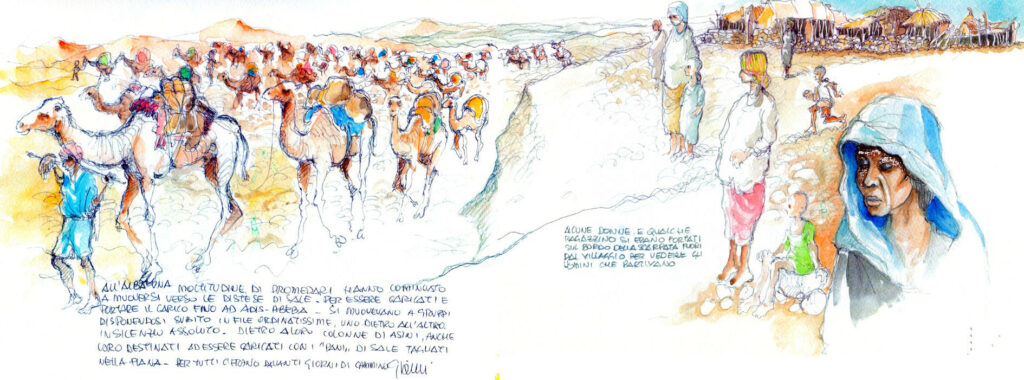 ALL'ALBA UNA MOLTITUDINE DI DROMEDARI HANNO COMINCIATO
A MUOVERSI VERSO LE DISTESE DI SALE - PER ESSERE CARICATI E
PORTARE IL CARICO FINO AD ADIS-ABEBA - SI MUOVEVANO A GRUPPI
DISPONENDOSI SUBITO IN FILE ORDINATISSIME, UNO DIETRO ALL'ALTRO
IN SILENZIO ASSOLUTO. DIETRO A LORO COLONNE DI ASINI, ANCHE
LORO DESTINATI AD ESSERE CARICATI CON I "PANI" DI SALE TAGLIATI
NELLA PIANA - PER TUTTI C'ERANO DAVANTI GIORNI DI CAMMINO
ALCUNE DONNE E QUALCHE
RAGAZZINO SI ERANO PORTATI
SUL BORDO DELLA SCARPATA FUORI
DAL VILLAGGIO PER VEDERE GLI
UOMINI CHE PARTIVANO